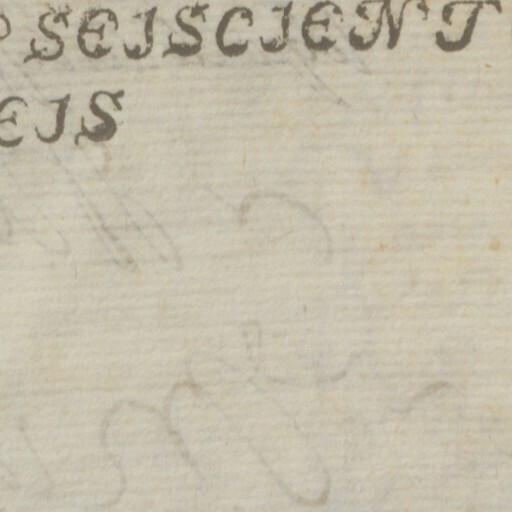 SEJSCJENT
EJS